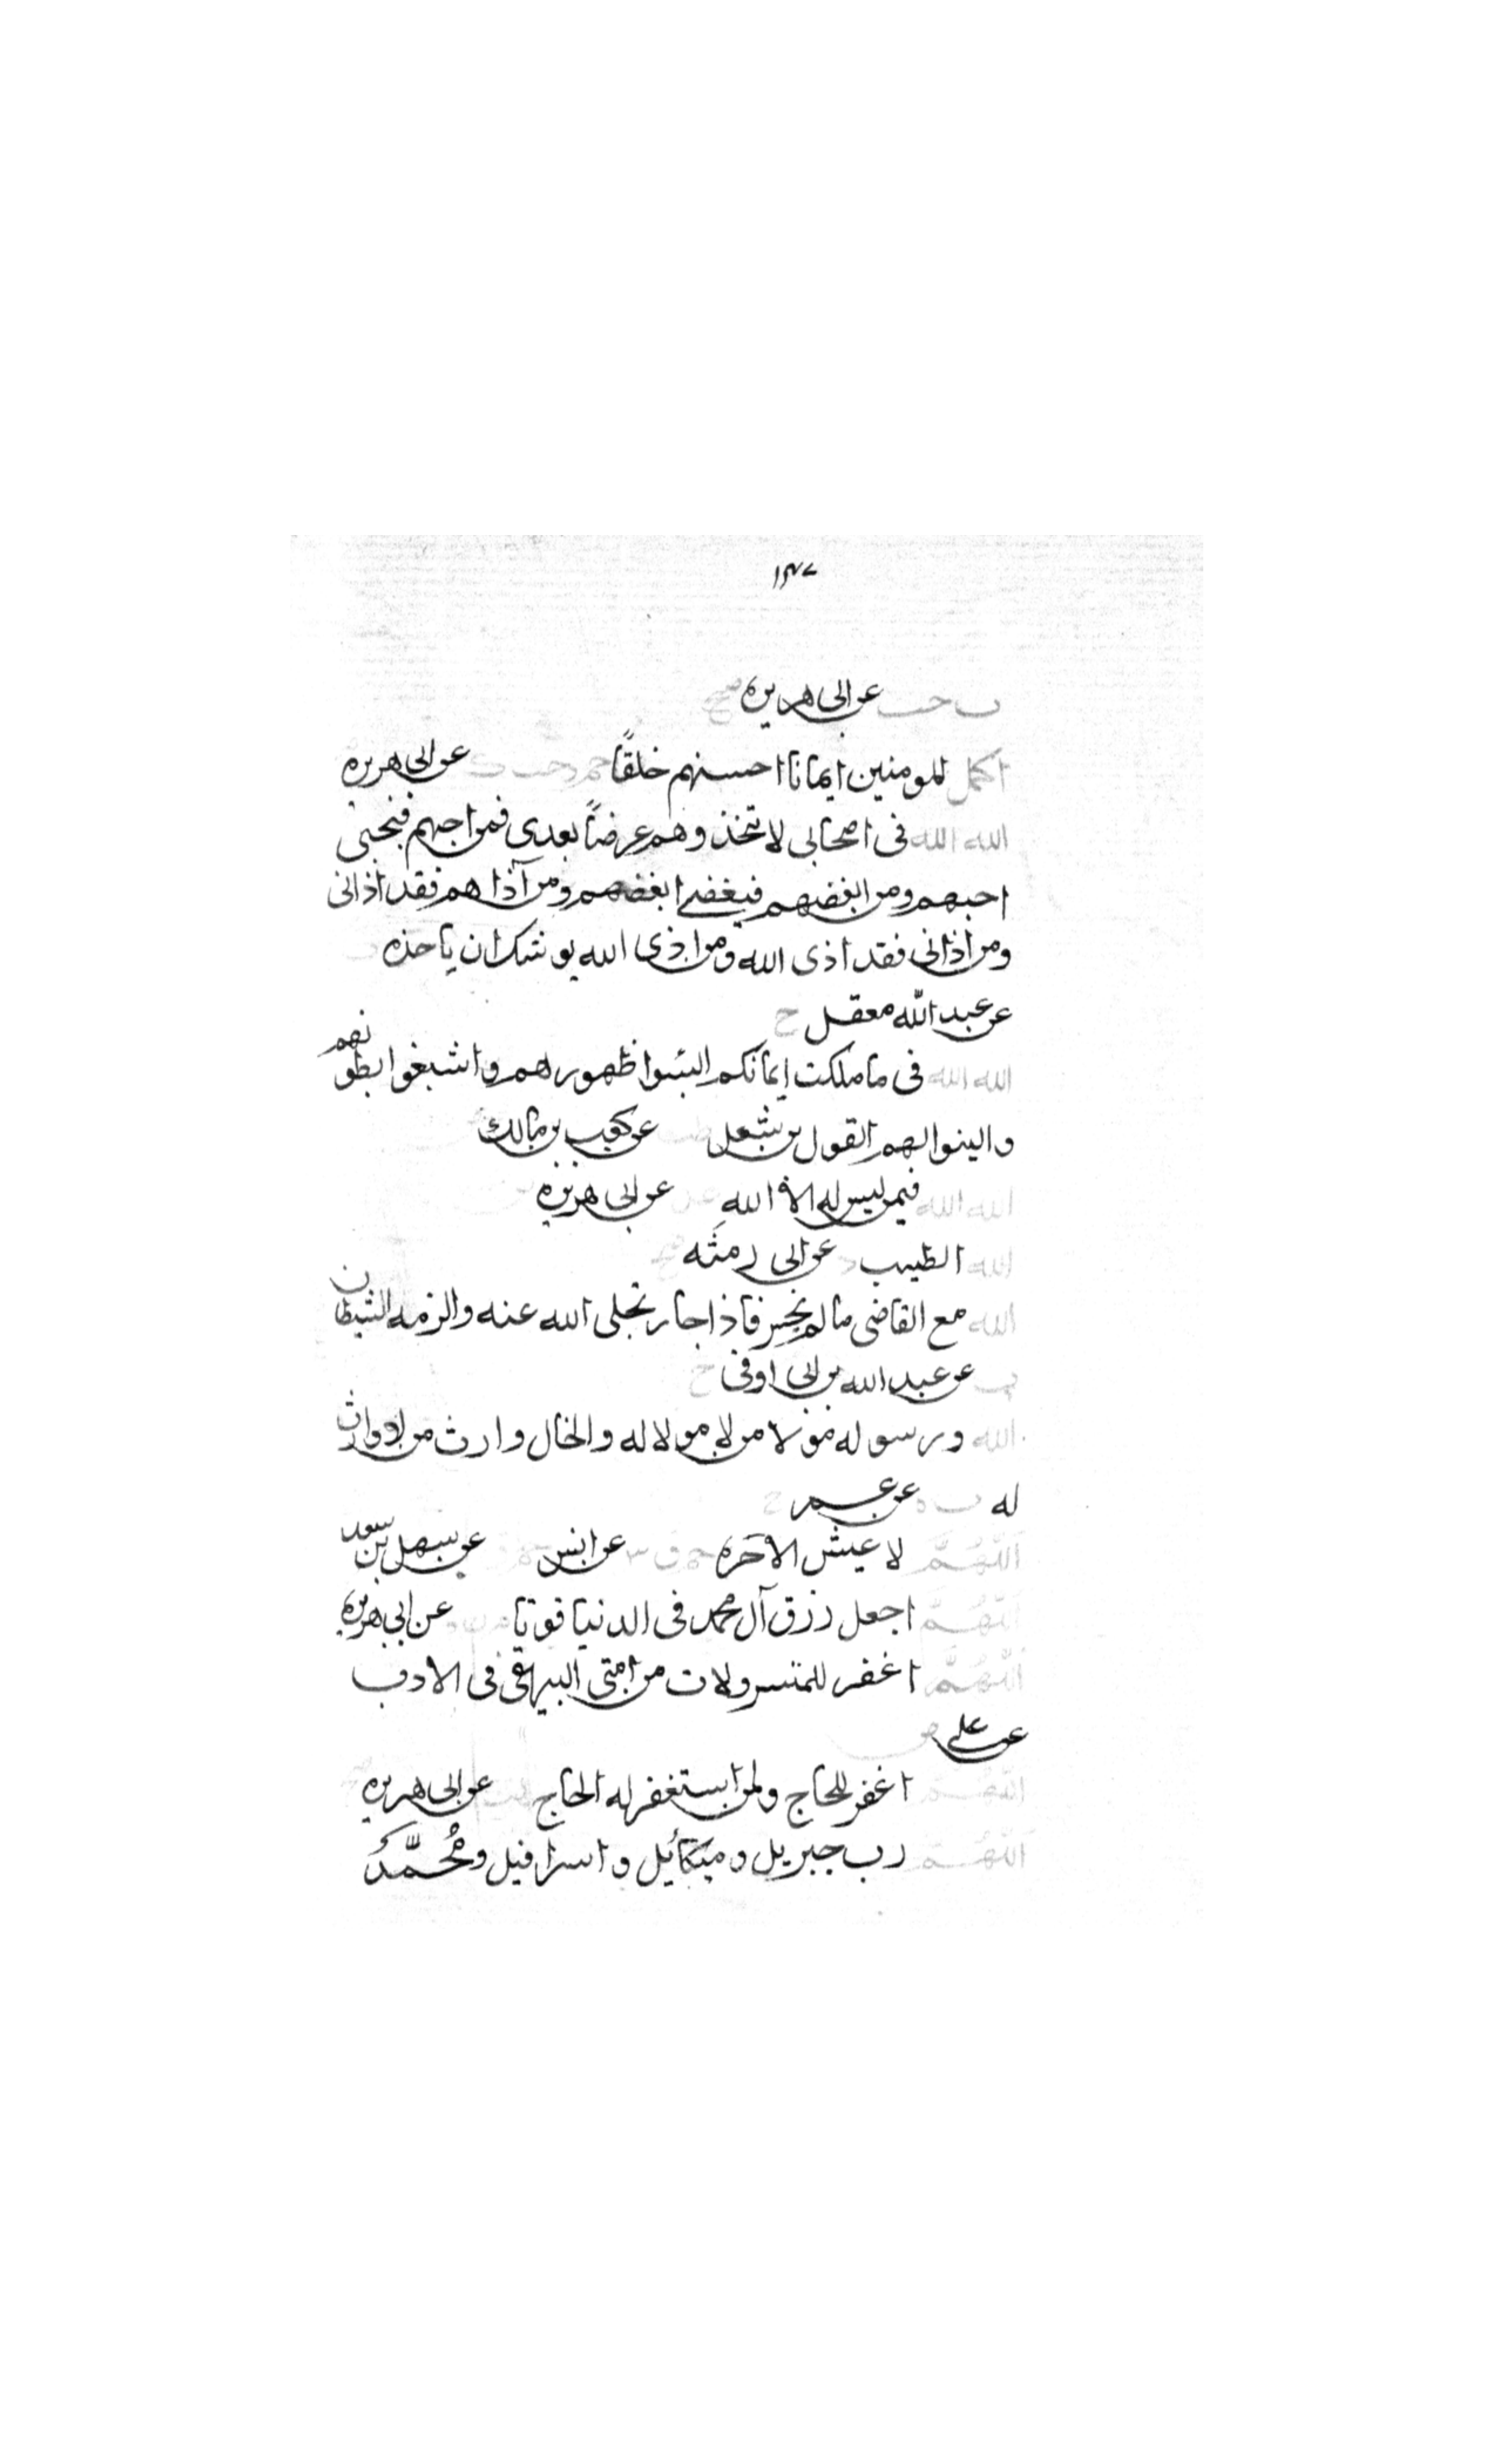 ١٣٧
ب حب عن ابى هريره صح
اكمل المومنين ايمانا احسنهم خلقًا حم د حب ك عن ابى هريره
الله الله فى اصحابى لا تتخذوهم عرضاً بعدى فمن احبهم فبحبى
احبهم ومن ابغضهم فببغضى ابغضهم ومن آذاهم فقد اذانى
ومن اذانى فقد اذى الله ومن اذى الله يوشك ان ياخذه
عن عبد الله معقل ح
الله الله فى ما ملكت ايمانكم البسوا ظهورهم واشبعوا بطونهم
والينوا لهم القول عن كعب بن مالك
الله الله فيمن ليس له الا الله عن ابى هريره
الله الطبيب د عن ابى رمثه
الله مع القاضى ما لم يجر فاذا جار تخلى الله عنه والزمه الشيطان
عن عبد الله بن ابى اوفى ح
الله ورسوله مولا من لا مولا له والخال وارث من لا وارث
له عن عمر ح
اللّٰهُمَّ لا عيش الا عيش الاخره حم ق عن انس عن سهل بن سعد
اللّٰهُمَّ اجعل رزق آل محمد فى الدنيا قوتا عن ابى هريره
اللّٰهُمَّ اغفر للمتسرولات من امتى البيهقى فى الادب
عن على
اللّٰهُمَّ اغفر للحاج ولمن استغفر له الحاج عن ابى هريره
اللّٰهُمَّ رب جبريل وميكائيل واسرافيل ومُحمَّد